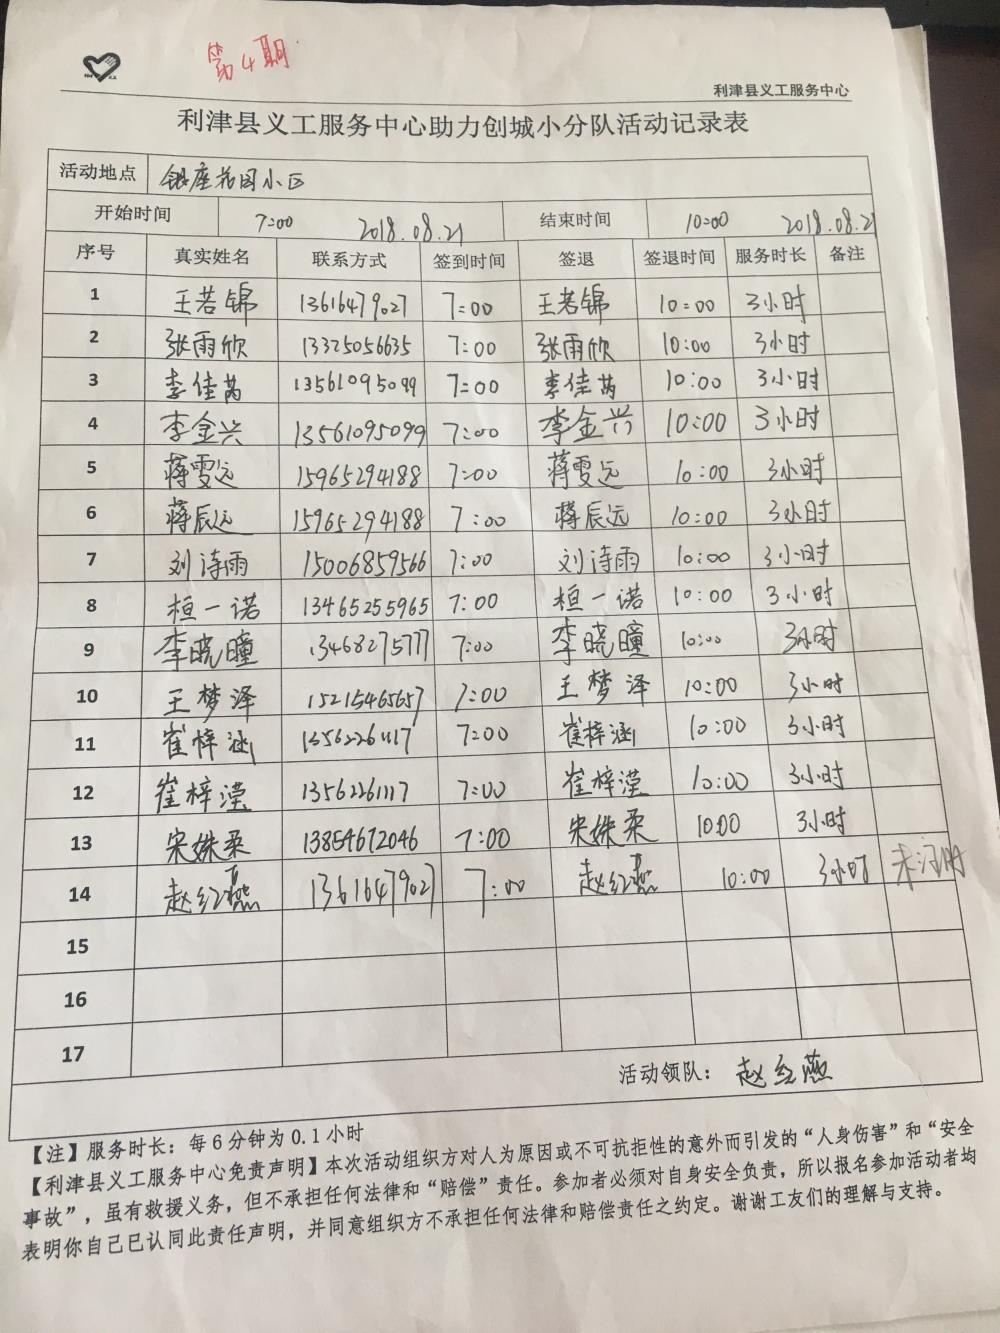 第4期
利津县义工服务中心
利津县义工服务中心助力创城小分队活动记录表
活动地点 银座花园小区
开始时间 7:00 2018.08.21 结束时间 10:00 2018.08.21
序号 真实姓名 联系方式 签到时间 签退 签退时间 服务时长 备注
1 王若锦 13616479027 7:00 王若锦 10:00 3小时
2 张雨欣 13325056635 7:00 张雨欣 10:00 3小时
3 李佳芮 13561095099 7:00 李佳芮 10:00 3小时
4 李金兴 13561095099 7:00 李金兴 10:00 3小时
5 蒋雯远 15965294188 7:00 蒋雯远 10:00 3小时
6 蒋辰远 15965294188 7:00 蒋辰远 10:00 3小时
7 刘诗雨 15006859566 7:00 刘诗雨 10:00 3小时
8 桓一诺 13465255965 7:00 桓一诺 10:00 3小时
9 李晓瞳 13468275777 7:00 李晓瞳 10:00 3小时
10 王梦泽 15215465657 7:00 王梦泽 10:00 3小时
11 崔梓涵 13562261117 7:00 崔梓涵 10:00 3小时
12 崔梓滢 13562261117 7:00 崔梓滢 10:00 3小时
13 宋姝柔 13854672046 7:00 宋姝柔 10:00 3小时
14 赵红燕 13616479027 7:00 赵红燕 10:00 3小时
15
16
17
活动领队： 赵红燕
【注】服务时长：每6分钟为0.1小时
【利津县义工服务中心免责声明】本次活动组织方对人为原因或不可抗拒性的意外而引发的“人身伤害”和“安全
事故”，虽有救援义务，但不承担任何法律和“赔偿”责任。参加者必须对自身安全负责，所以报名参加活动者均
表明你自己已认同此责任声明，并同意组织方不承担任何法律和赔偿责任之约定。谢谢工友们的理解与支持。